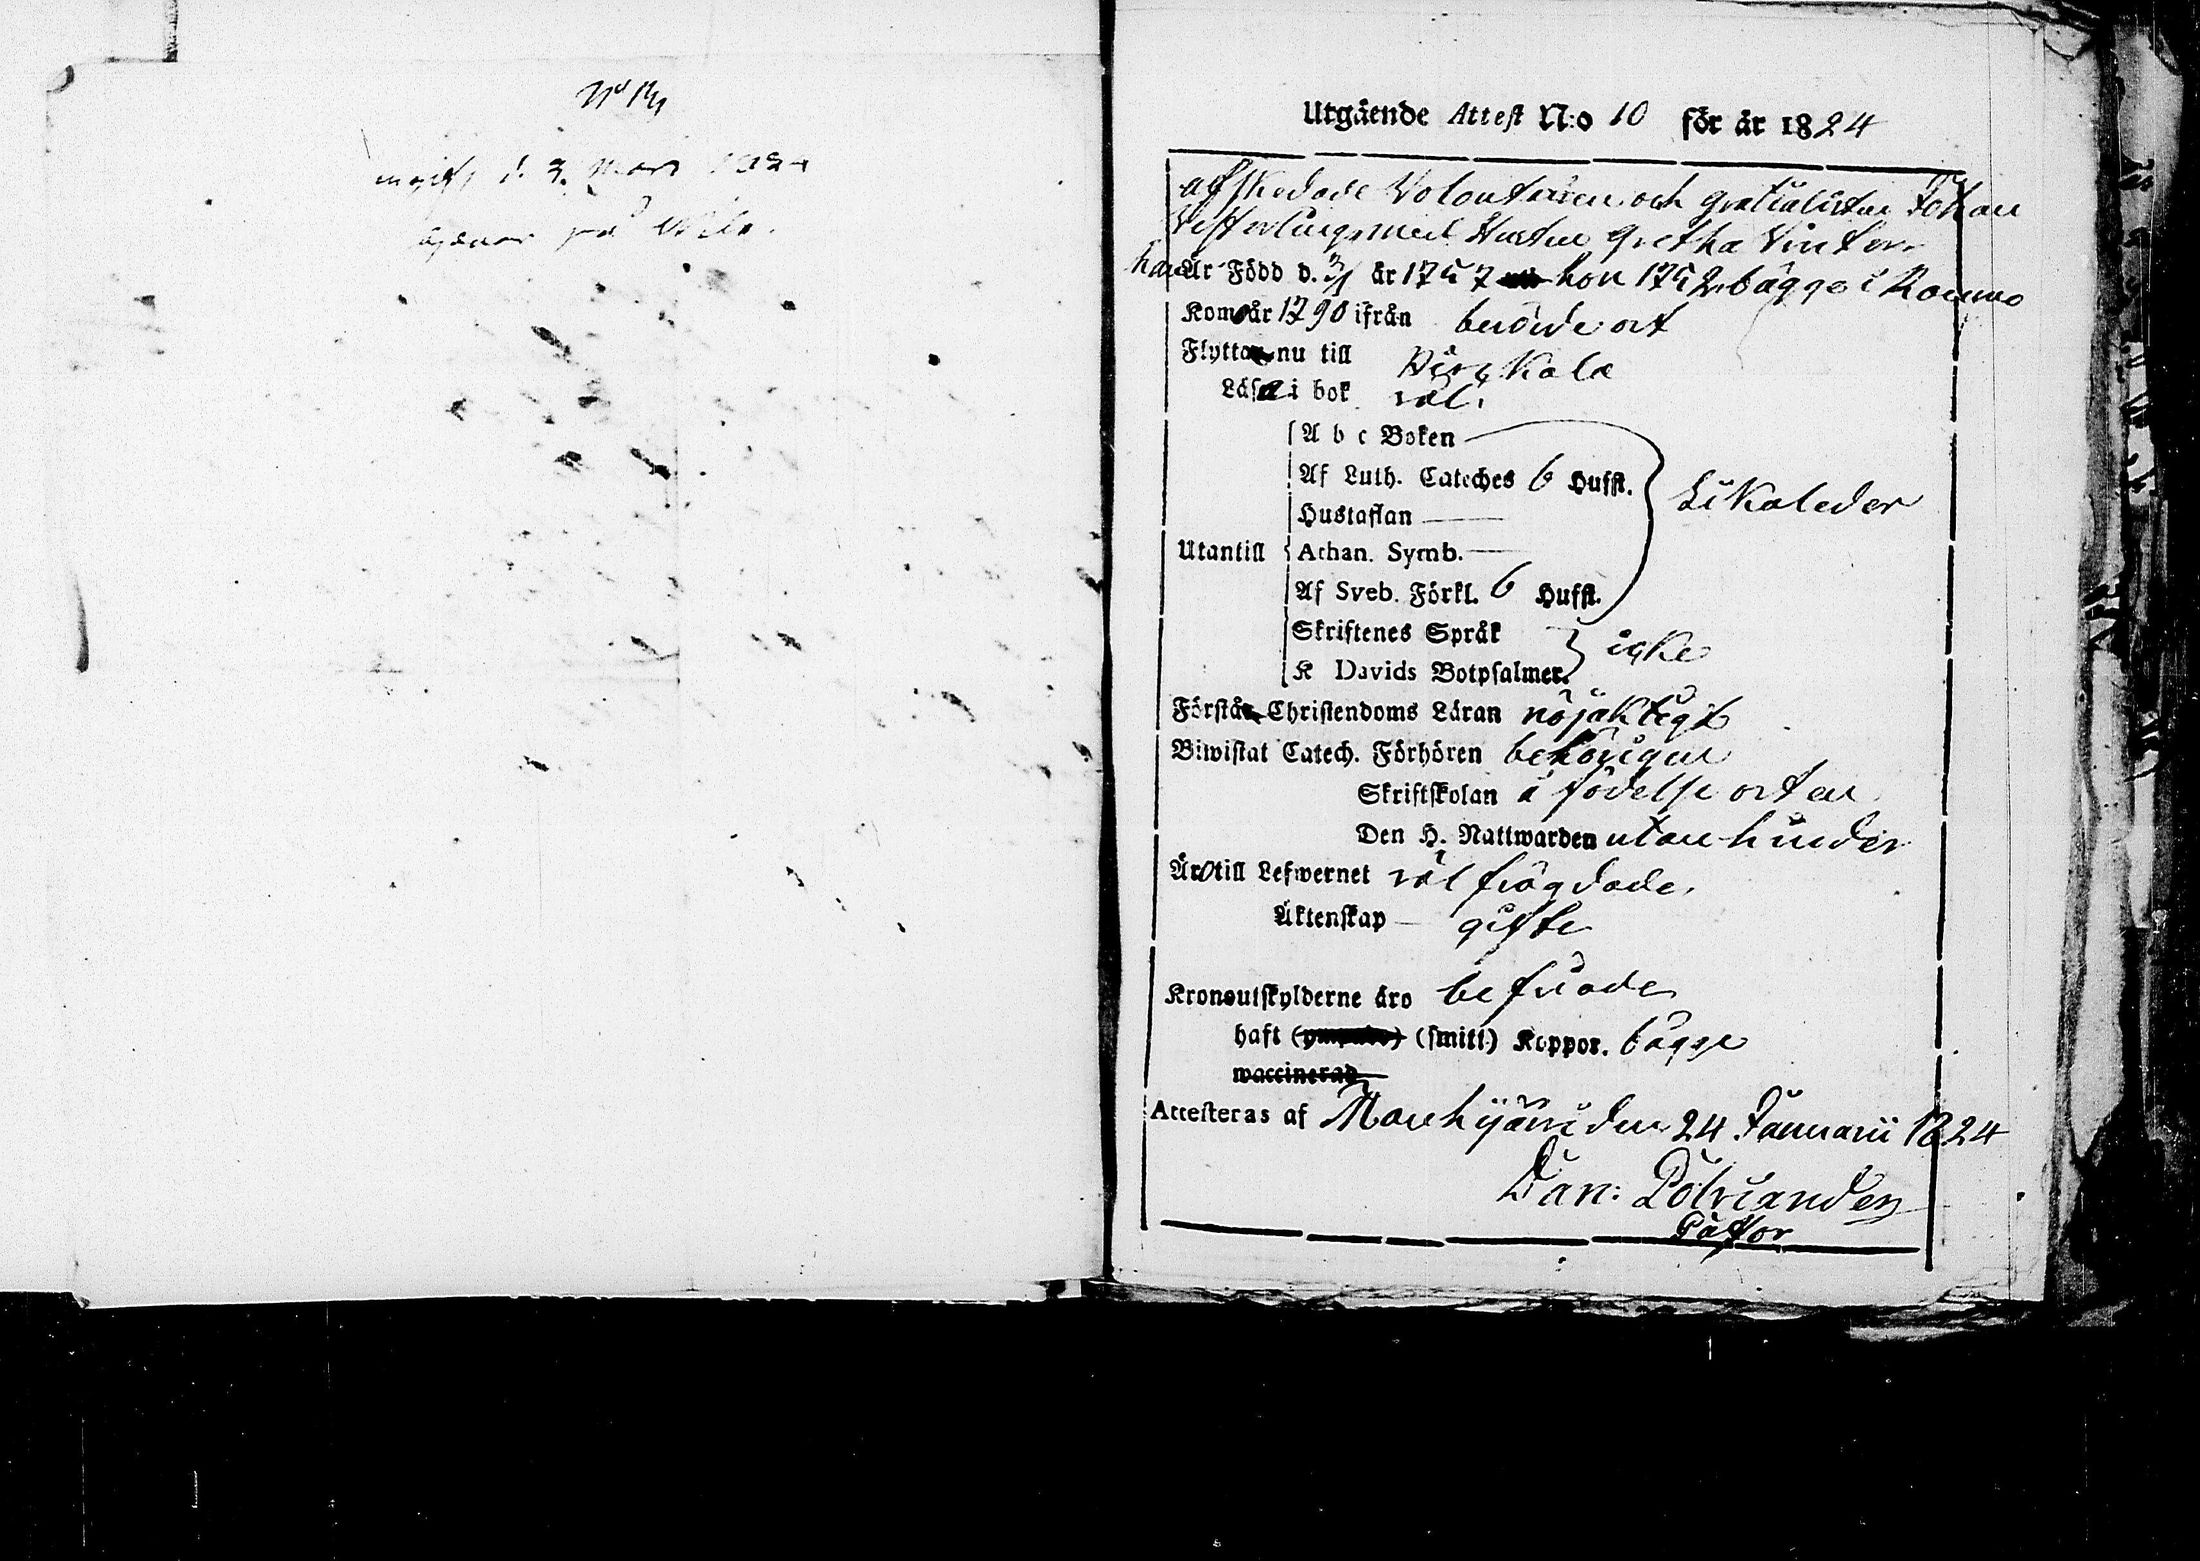 d. 3. Mars
på
Utgående Attest N:o 10 för år 1824
afskedade Volontairen och gratialisten Johan
Vesterling med Hustru Gretha Vinter.
han Är Född d. 3/1 år 1757 hon 1752 bägge i Raumo
Kom år 1790 ifrån berörde ort
Flyttar nu till Pirckala
Läsa i bok väl.
A b c Boken
Af Luth. Cateches 6 Hufst.
Likaleder
Hustaflan
Utantill
Athan. Symb.
Af Sveb. Förkl. 6 Hufst.
Skriftenes Språk
icke
K Davids Botpsalmer.
Förstå Christendoms Läran nöjaktigt
Biwistat Catech. Förhören behörigen
Skriftskolan å födelse orten
Den H. Nattwarden utan hinder
Äro till Lefwernet väl frägdade.
Äktenskap gifte
Kronoutskylderne äro befriade
haft (smitt.) Koppor. bägge
waccinerad
Attesteras af Mouhijärvi den 24 Januarii 1824
Dan: Polviander
Pastor